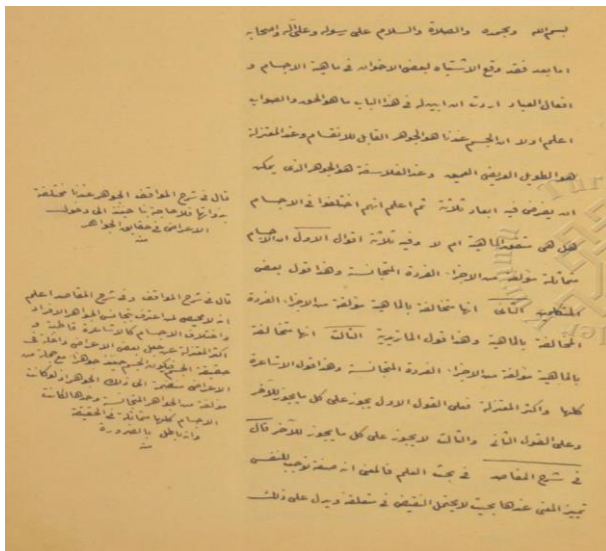 بسم الله وبحمده والصلاة والسلام على رسوله وعلى آله واصحابه
اما بعد فقد وقع الاشتباه لبعض الاخوان فى ماهية الاجسام و
افعال العباد اردت ان ابين له فى هذا الباب ما هو الحق والصواب
اعلم اولا ان الجسم عندنا هو الجوهر القابل للانقسام وعند المعتزلة
هو الطويل العريض العميق وعند الفلاسفة هو الجوهر الذى يمكن
ان يفرض فيه ابعاد ثلاثة ثم اعلم انهم اختلفوا فى الاجسام
هل هى متحدة الماهية ام لا وفيه ثلاثة اقوال الاول ان الاجسام
متماثلة مؤلفة من الاجزاء الفردة المتجانسة وهذا قول بعض
المتكلمين الثانى انها متخالفة بالماهية مؤلفة من الاجزاء الفردة
المتخالفة بالماهية وهذا قول الماتريدية الثالث انها متخالفة
بالماهية مؤلفة من الاجزاء الفردة المتجانسة وهذا قول الاشاعرة
كلها واكثر المعتزلة فعلى القول الاول يجوز على كل ما يجوز للآخر
وعلى القول الثانى والثالث لا يجوز على كل ما يجوز للآخر قال
فى شرح المقاصد فى بحث العلم فالمعنى انه صفة توجب للنفس
تمييز المعنى عندها بحيث لا يحتمل النقيض فى متعلقه ويدل على ذلك
قال فى شرح المواقف الجوهر عندنا مختلفة
بذواتها فلا حاجة بنا حينئذ الى دخول
الاعراض فى حقائق الجواهر
قال فى شرح المواقف وفى شرح المقاصد اعلم
انه لا محيص لمن اعترف بتجانس الجواهر الافراد
واختلاف الاجسام كالاشاعرة قاطبة و
اكثر المعتزلة عن جعل بعض الاعراض داخلة فى
حقيقة الجسم فيكون الجسم حينئذ جوهرا مع جملة من
الاعراض منضمة الى ذلك الجوهر اذ لو كانت
مؤلفة من الجواهر المتجانسة وحدها لكانت
الاجسام كلها متماثلة فى الحقيقة
وانه باطل بالضرورة